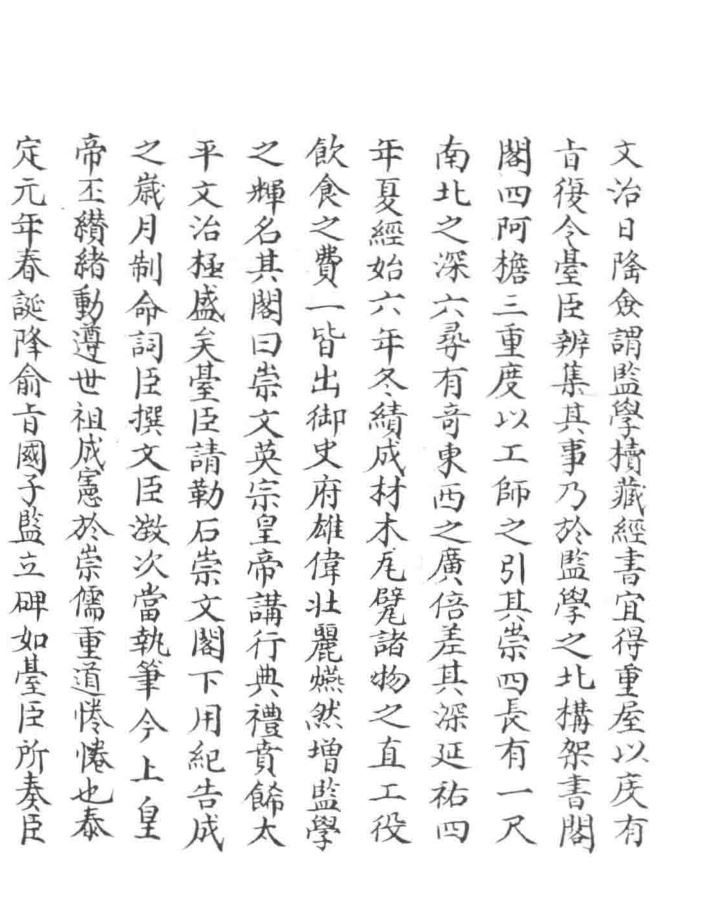 文治日隆僉謂監學櫝藏經書宜得重屋以庋有
旨復令臺臣辦集其事乃於監學之北構架書閣
閣四阿檐三重度以工師之引其崇四長有一尺
南北之深六尋有奇東西之廣倍差其深延祐四
年夏經始六年冬績成材木瓦甓諸物之直工役
飲食之費一皆出御史府雄偉壯麗煥然增監學
之輝名其閣曰崇文英宗皇帝講行典禮賁餙太
平文治極盛矣臺臣請勒石崇文閣下用紀告成
之歲月制命詞臣撰文臣澂次當執筆今上皇
帝丕纉緒動遵世祖成憲於崇儒重道惓惓也泰
定元年春誕降俞旨國子監立碑如臺臣所奏臣